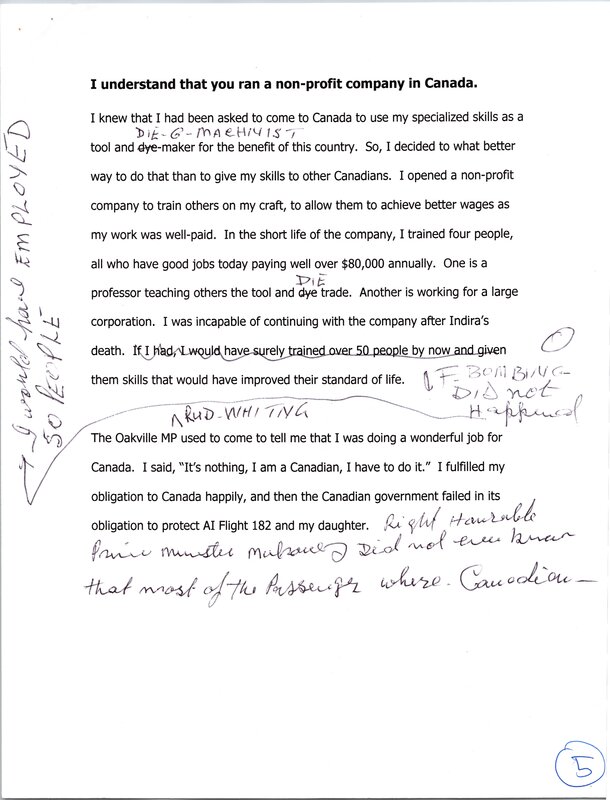 I understand that you ran a non-profit company in Canada.
I knew that I had been asked to come to Canada to use my specialized skills as a
DIE-G-MACHIVIST
tool and dye-maker for the benefit of this country.  So, I decided to what better
way to do that than to give my skills to other Canadians.  I opened a non-profit
company to train others on my craft, to allow them to achieve better wages as
my work was well-paid.  In the short life of the company, I trained four people,
all who have good jobs today paying well over $80,000 annually.  One is a
DIE
professor teaching others the tool and dye trade.  Another is working for a large
corporation.  I was incapable of continuing with the company after Indira's
death.  If I had, I would have surely trained over 50 people by now and given
them skills that would have improved their standard of life.
IF BOMBING
DID not
Happened
I would have EMPLOYED
50 PEOPLE
RUD-WHITING
The Oakville MP used to come to tell me that I was doing a wonderful job for
Canada.  I said, "It's nothing, I am a Canadian, I have to do it."  I fulfilled my
obligation to Canada happily, and then the Canadian government failed in its
obligation to protect AI Flight 182 and my daughter. Right Hourable
Prime minister Did not even know
that most of the Passenger where. Canadian
5